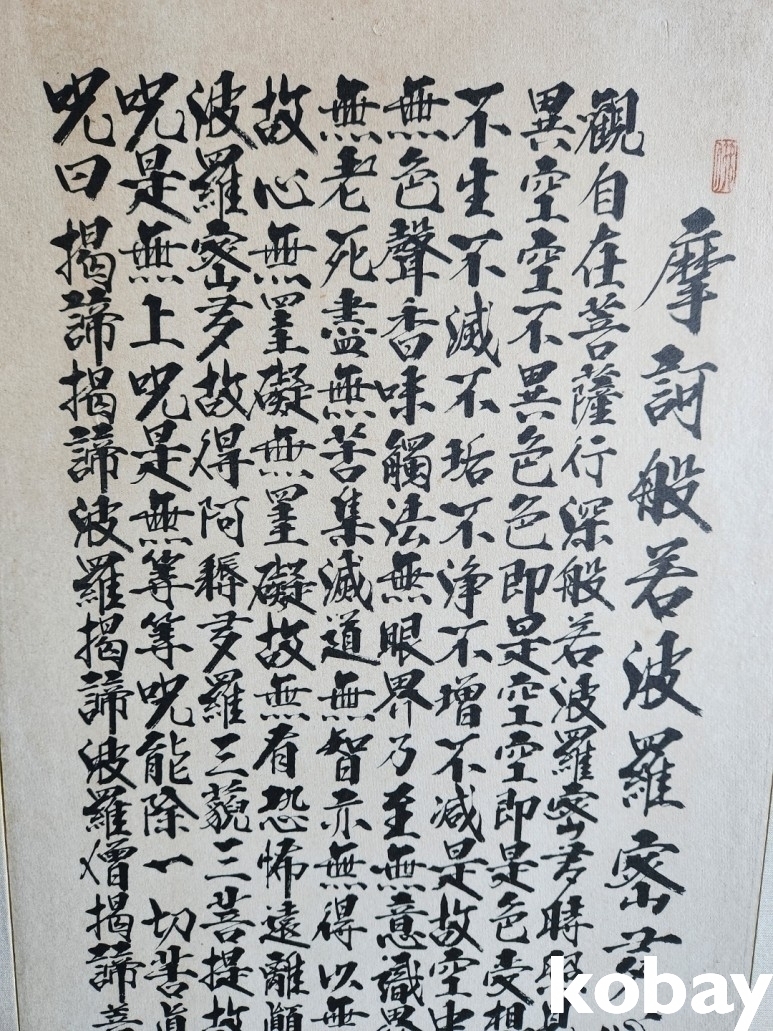 摩訶般若波羅密多
觀自在菩薩行深般若波羅密多時照見
異空空不異色色即是空空即是色受想
不生不滅不垢不淨不增不减是故空中
無色聲香味觸法無眼界乃至無意識界
無老死盡無苦集滅道無智亦無得以無
故心無罣礙無罣礙故無有恐怖遠離顛
波羅密多故得阿耨多羅三藐三菩提故
呪是無上呪是無等等呪能除一切苦真
呪曰揭諦揭諦波羅揭諦波羅僧揭諦菩
kobay